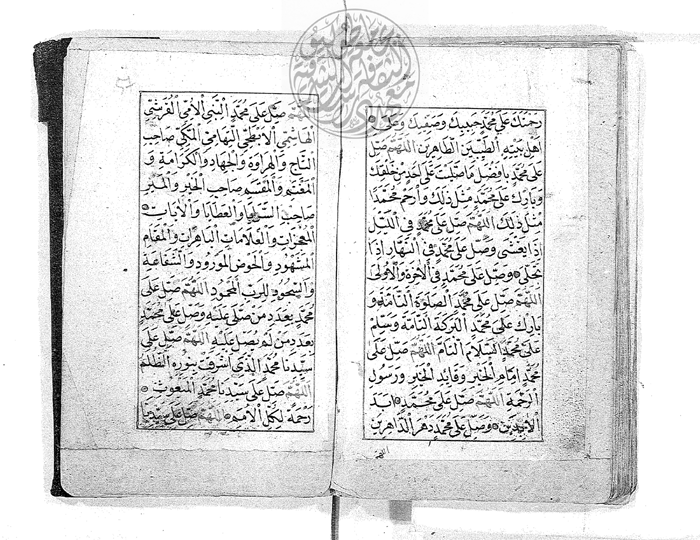 رحمتك على محمد حبيبك وصفيك وعلى
اهل بيته الطيبين الطاهرين اللهم صل
على محمد بافضل ما صليت على احد من خلقك
وبارك على محمد مثل ذلك وارحم محمدا
مثل ذلك اللهم صل على محمد في الليل
اذا يغشى وصل على محمد في النهار اذا
تجلى وصل على محمد في الاخرة والاولى
اللهم صل على محمد الصلوة التامة و
بارك على محمد البركة التامة وسلم
على محمد السلام التام اللهم صل على
محمد امام الخير وقايد الخير ورسول
الرحمة اللهم صل على محمد ابد
الابدين وصل على محمد دهر الداهرين
اللهم
اللهم صل على محمد النبي الامي القرشي
الهاشمي الابطحي التهامي المكي صاحب
التاج والهراوة والجهاد والكرامة و
المغنم والمقسم صاحب الخير والمنبر
صاحب السرايا والعطايا والايات
المعجزات والعلامات الباهرات والمقام
المشهود والحوض المورود والشفاعة
والسجود للرب المحمود اللهم صل على
محمد بعدد من صلى عليه وصل على محمد
بعدد من لم يصل عليه اللهم صل على
سيدنا محمد الذي اشرقت بنوره الظلم
اللهم صل على سيدنا محمد المبعوث
رحمة لكل الامم اللهم صل على سيدنا